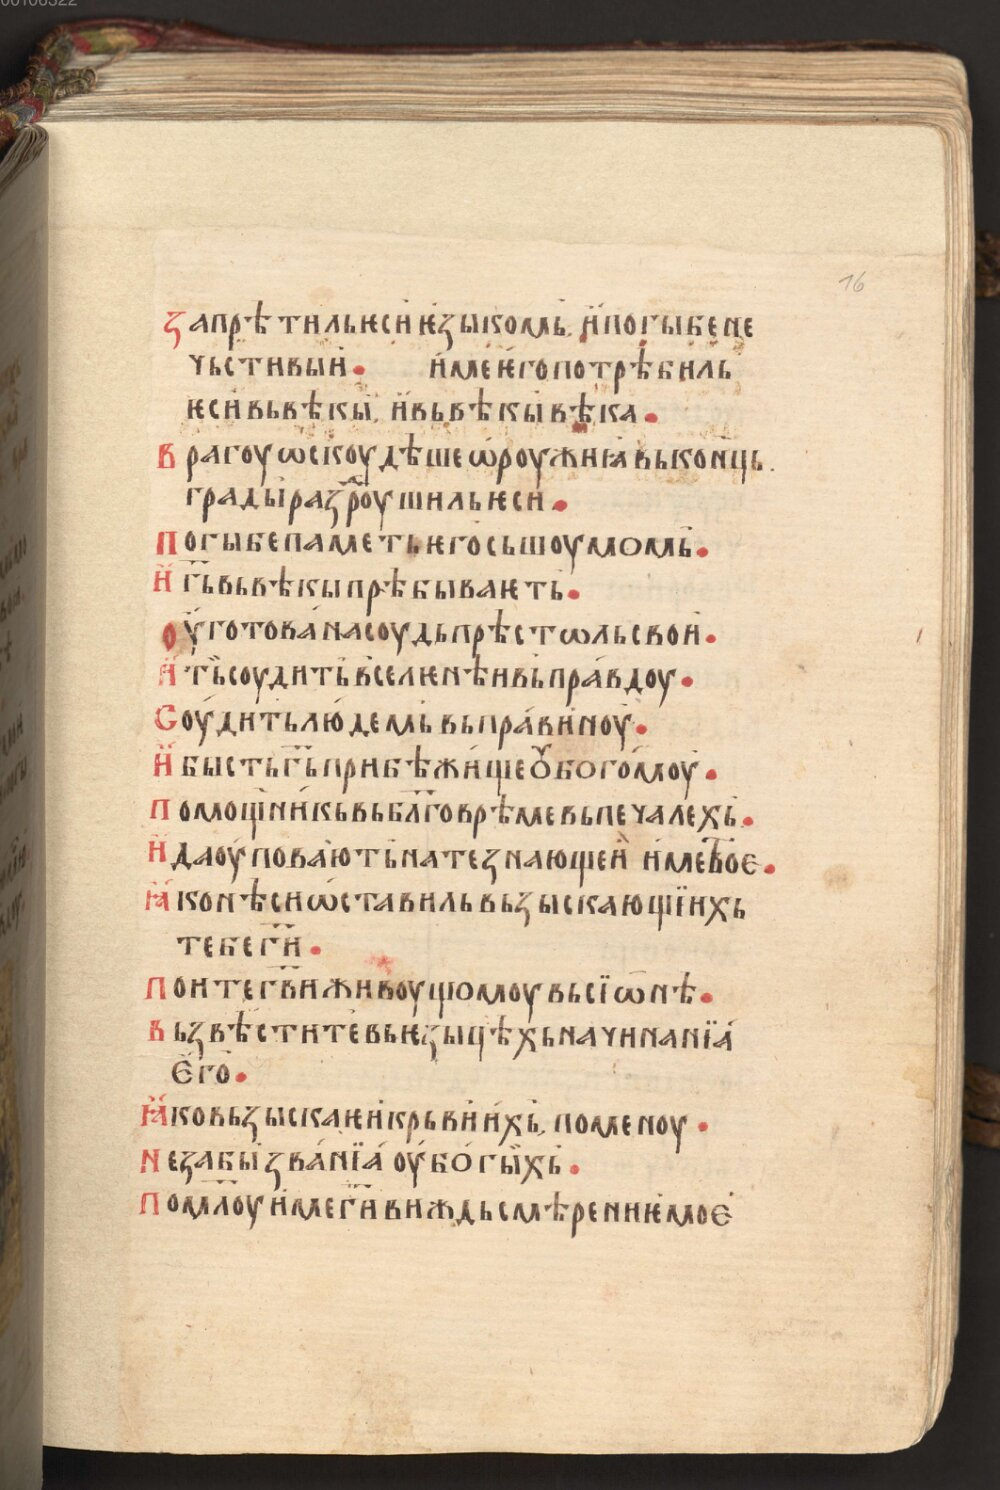 00106322
16
Запрѣтильѥси ѥзыкомь. и҆погыбене
чьстивыи• и҆меѥгопотрѣбиль
ѥсивьвѣкы, и҆вьвѣкывѣка•
Врагоуѡскоудѣшеѡ҆роужиꙗвькон҆ць.
градыразроушильѥси•
Погыбепаметьѥгосьшоумомь•
И҆г҃ьвьвѣкыпрѣбываѥть•
Оу҆готованасоудьпрѣстѡльсвои•
И҆тьсоудитьвселѥнѣивьправдоу•
Соудитьлюдемьвьправиноу•
И҆бысть г҃ьприбѣжищеꙋбогомоу•
Помощникьвьбл҃говрѣмевьпечалехь•
И҆даоу҆поваютьнатезнающеи и҆метвоє•
Ꙗ҆конѣсиѡ҆ставильвьзыскающїихь
тебег҃и•
Поитег҃вижи҆воущомоувьсїѡнѣ•
Вьзвѣститевьѥзыцѣхьначинанїа
є҆го•
Ꙗ҆ковьзыскаѥикрьвиихь, поменоу•
Незабызванїаоу҆богыихь•
Пом҃лоуи҆мег҃ивиждьсмѣрениѥмоє